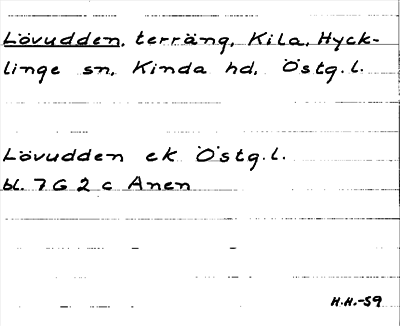 Lövudden, terräng, Kila, Hyck-
linge sn, Kinda hd, Östg.l.
Lövudden ek Östg.l.
bl. 7G2c Anen
H.H.-59